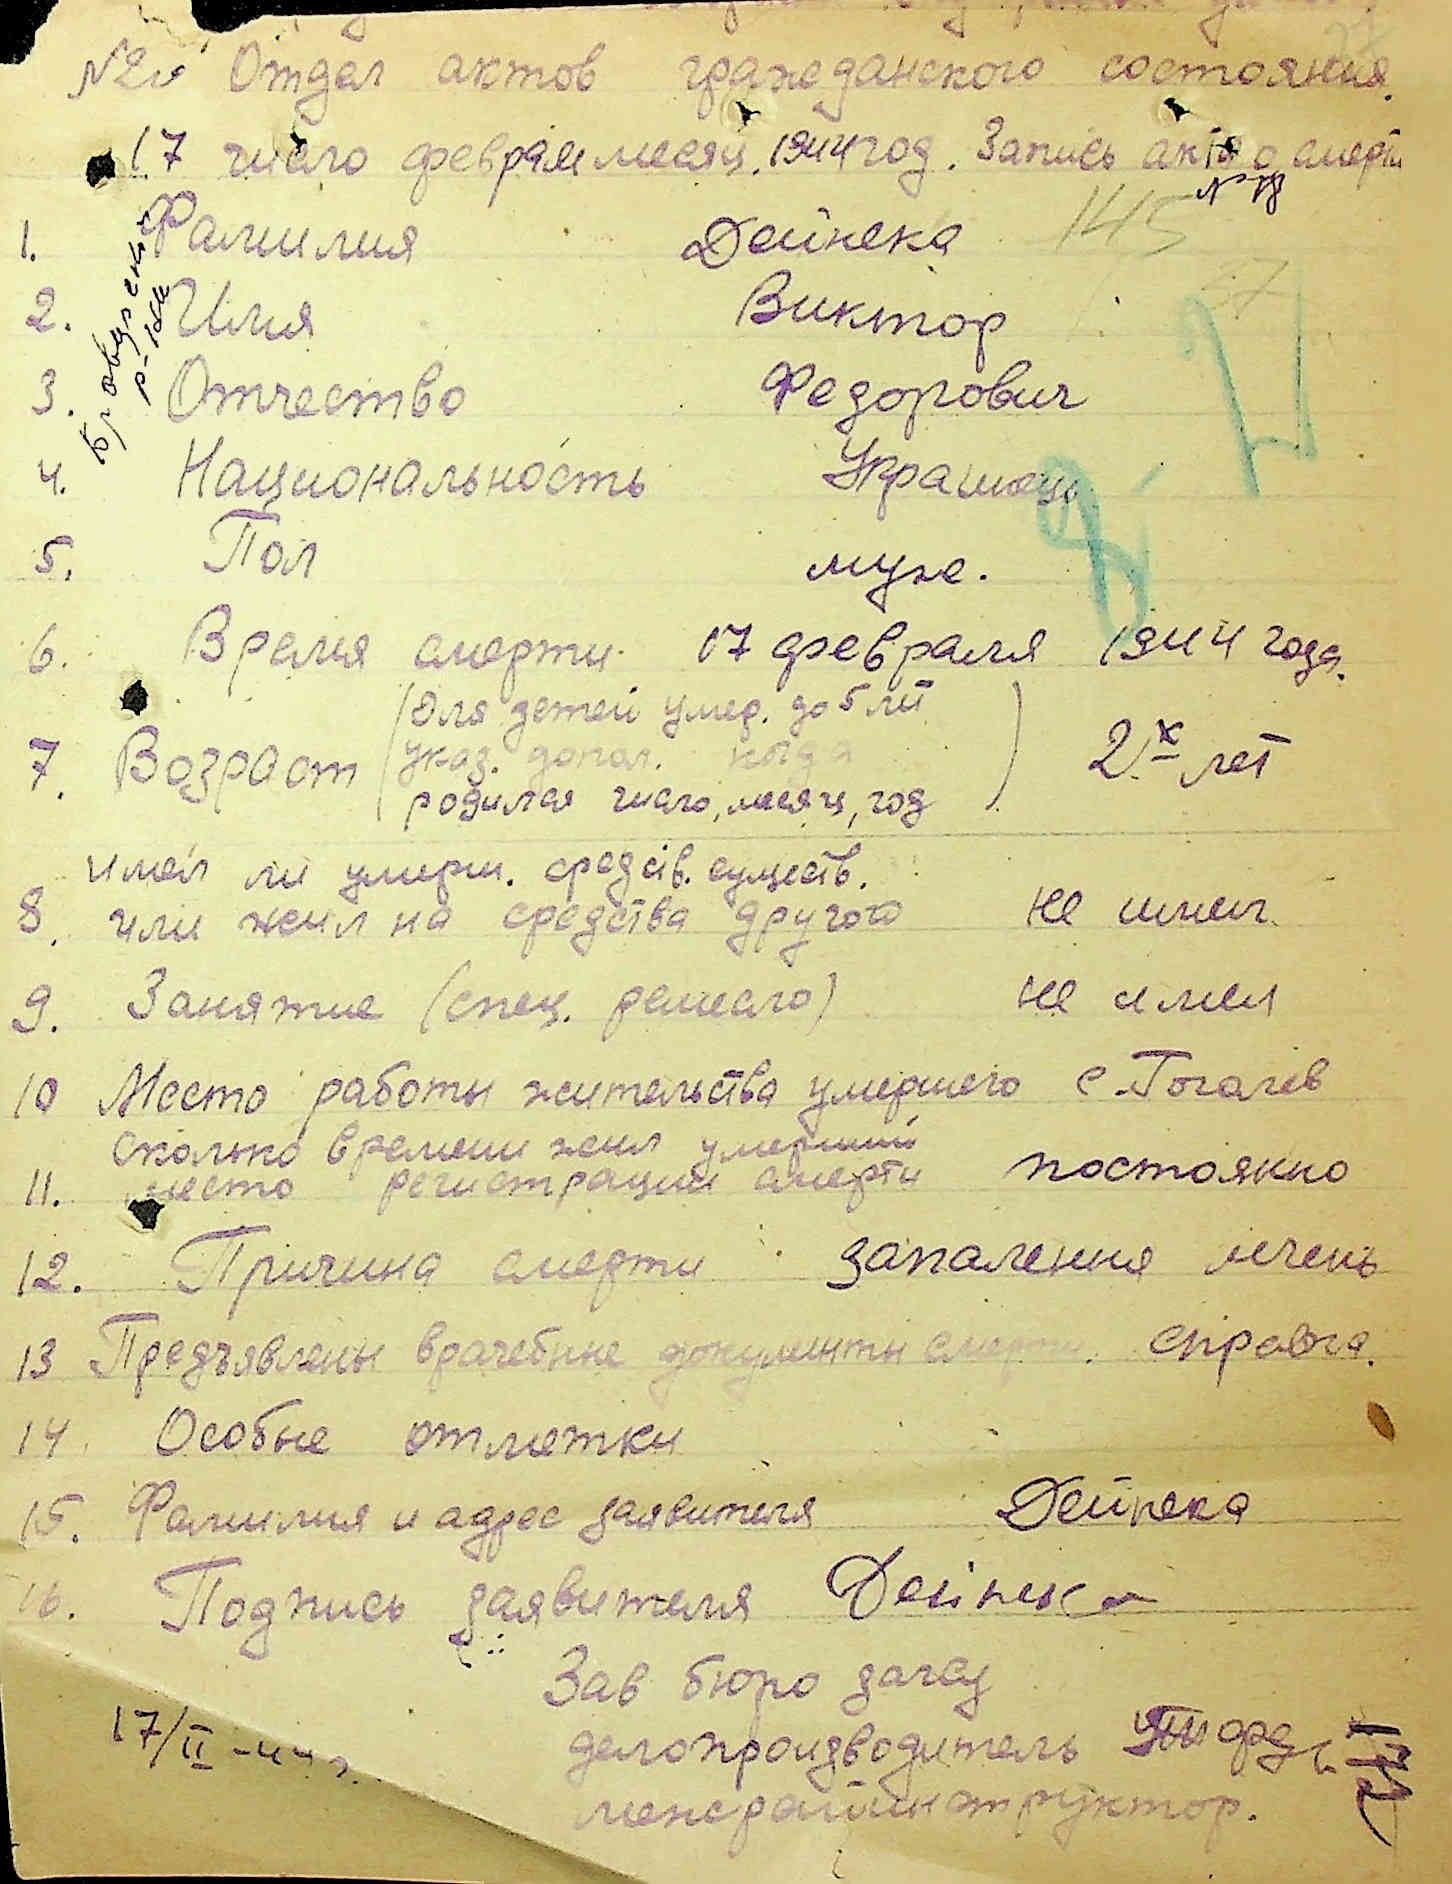 Отдел актов гражданского состояния.
17 число февраля месяц. 1944 год. Запись акта о смерти
№ 18
145
1. Фамилия Дейнека
2. Имя Виктор
3. Отчество Федорович
4. Национальность Украинец
5. Пол муж.
6. Время смерти 17 февраля 1944 года.
(Для детей умер. до 5 лет
7. Возраст указ. допол. когда 2х лет
родился число, месяц, год)
имел ли умерш. средств. существ.
8. или жил на средства другого не имел
9. Занятие (спец. ремесло) не имел
10 Место работы жительства умершего с. Гоголев
сколько времени жил умерший
11. место регистрации смерти постоянно
12. Причина смерти запаления печень
13 Предъявлены врачебные документы смерти. справка.
14. Особые отметки
15. Фамилия и адрес заявителя Дейнека
16. Подпись заявителя Дейнека
Зав бюро загса
17/II-44 г.
делопроизводитель